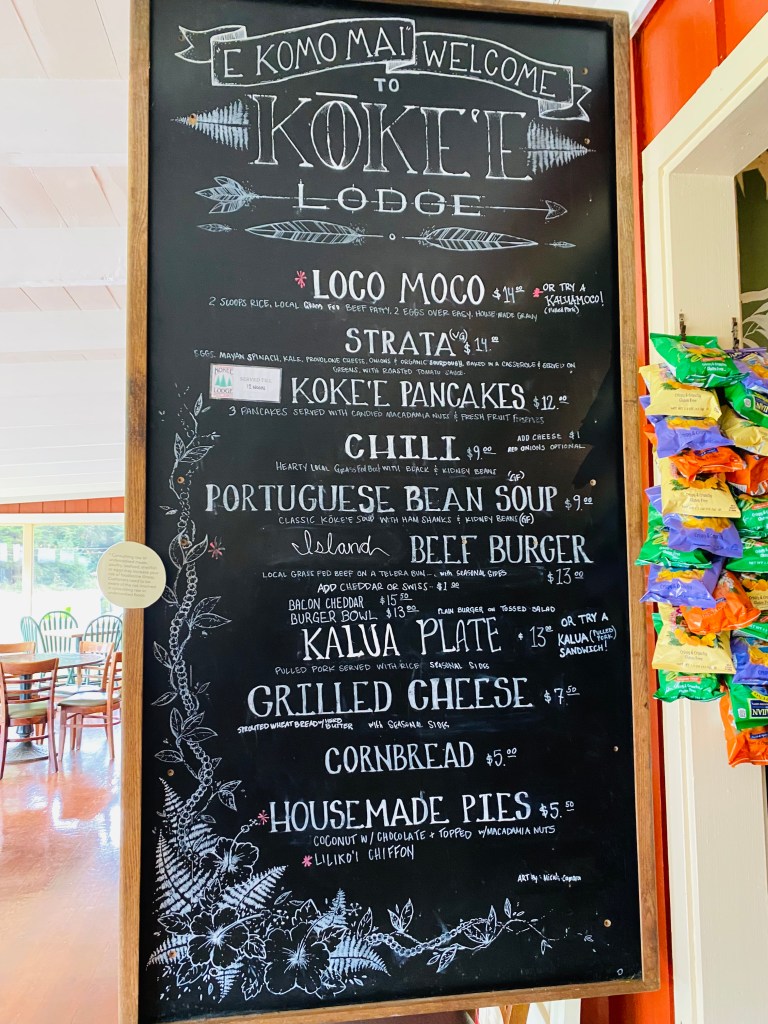 "E KOMO MAI" WELCOME
TO
KŌKE'E
LODGE
* LOCO MOCO $14.00 * OR TRY A KALUAMOCO! (Pulled Pork)
2 SCOOPS RICE, LOCAL Grass Fed BEEF PATTY, 2 EGGS OVER EASY, HOUSE-MADE GRAVY
STRATA (VG) $14.00
EGGS, MAYAN SPINACH, KALE, PROVOLONE CHEESE, ONIONS & ORGANIC SOURDOUGH, BAKED IN A CASSEROLE & SERVED ON
GREENS, WITH ROASTED TOMATO
KOKEE
LODGE
KOKE'E PANCAKES $12.00
3 PANCAKES SERVED WITH CANDIED MACADAMIA NUTS & FRESH FRUIT
CHILI $9.00 ADD CHEESE $1
RED ONIONS OPTIONAL
HEARTY LOCAL GRASS FED Beef WITH BLACK & KIDNEY BEANS (GF)
PORTUGUESE BEAN SOUP $9.00
CLASSIC KŌKE'E SOUP WITH HAM SHANKS & KIDNEY BEANS (GF)
Island BEEF BURGER
LOCAL GRASS FED BEEF ON A TELERA BUN... with SEASONAL SIDES $13.00
ADD CHEDDAR OR SWISS - $1.00
BACON CHEDDAR $15.50
BURGER BOWL $13.00 PLAIN BURGER ON TOSSED SALAD
KALUA PLATE $13.00 OR TRY A KALUA (PULLED PORK) SANDWICH!
PULLED PORK SERVED WITH RICE SEASONAL SIDES
GRILLED CHEESE $7.50
SPROUTED WHEAT BREAD w/ HERB BUTTER with SEASONAL SIDES
CORNBREAD $5.00
* HOUSEMADE PIES $5.50
COCONUT W/ CHOCOLATE + TOPPED W/MACADAMIA NUTS
* LILIKO'I CHIFFON
ART by: